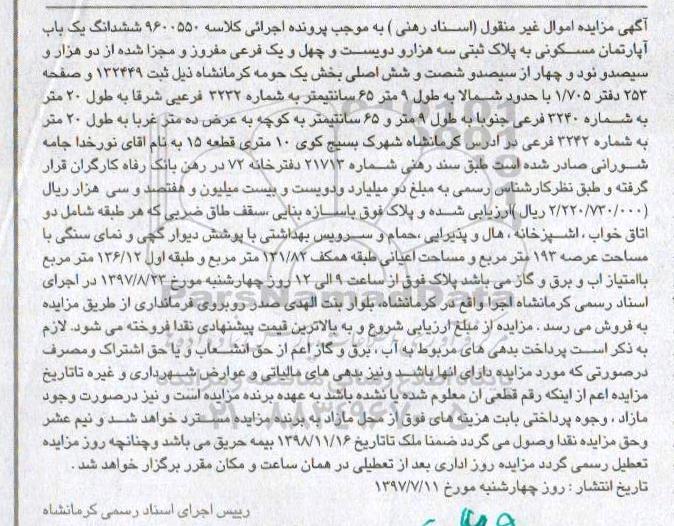 آگهی مزایده اموال غیر منقول (اسناد رهنی) به موجب پرونده اجرائی کلاسه ۹۶۰۰۵۵۰ ششدانگ یک باب
آپارتمان مسکونی به پلاک ثبتی سه هزارو دویست و چهل و یک فرعی مفروز و مجزا شده از دو هزار و
سیصدو نود و چهار از سیصدو شصت و شش اصلی بخش یک حومه کرمانشاه ذیل ثبت ۱۳۲۴۴۹ و صفحه
۲۵۳ دفتر ۱/۷۰۵ با حدود شمالا به طول ۹ متر ۶۵ سانتیمتر به شماره ۳۲۳۲ فرعیی شرقا به طول ۲۰ متر
به شماره ۳۲۴۰ فرعی جنوبا به طول ۹ متر و ۶۵ سانتمتر به کوچه به عرض ده متر غربا به طول ۲۰ متر
به شماره ۳۲۴۲ فرعی در ادرس کرمانشاه شهرک بسیج کوی ۱۰ متری قطعه ۱۵ به نام اقای نورخدا جامه
شورانی صادر شده است طبق سند رهنی شماره ۲۱۷۱۳ دفترخانه ۷۲ در رهن بانک رفاه کارگران قرار
گرفته و طبق نظرکارشناس رسمی به مبلغ دو میلیارد ودویست و بیست میلیون و هفتصد و سی هزار ریال
(۲/۲۲۰/۷۳۰/۰۰۰ ریال )ارزیابی شده و پلاک فوق باسازه بنایی ،سقف طاق ضربی که هر طبقه شامل دو
اتاق خواب ، اشپزخانه ، هال و پذیرایی ،حمام و سرویس بهداشتی با پوشش دیوار گچی و نمای سنگی با
مساحت عرصه ۱۹۳ متر مربع و مساحت اعیانی طبقه همکف ۱۲۱/۸۲ متر مربع و طبقه اول ۱۳۶/۱۲ متر مربع
باامتیاز اب و برق و گاز می باشد پلاک فوق از ساعت ۹ الی ۱۲ روز چهارشنبه مورخ ۱۳۹۷/۸/۲۳ در اجرای
اسناد رسمی کرمانشاه اجرا واقع در کرمانشاه، بلوار بنت الهدی صدر روبروی فرمانداری از طریق مزایده
به فروش می رسد . مزایده از مبلغ ارزیابی شروع و به بالاترین قیمت پیشنهادی نقدا فروخته می شود. لازم
به ذکر است پرداخت بدهی های مربوط به آب ، برق و گاز اعم از حق انشعاب و یا حق اشتراک ومصرف
درصورتی که مورد مزایده دارای انها باشد ونیز بدهی های مالیاتی و عوارض شهرداری و غیره تاتاریخ
مزایده اعم از اینکه رقم قطعی ان معلوم شده یا نشده باشد به عهده برنده مزایده است و نیز درصورت وجود
مازاد ، وجوه پرداختی بابت هزینه های فوق از محل مازاد به برنده مزایده مسترد خواهد شد و نیم عشر
وحق مزایده نقدا وصول می گردد ضمنا ملک تاتاریخ ۱۳۹۸/۱۱/۱۶ بیمه حریق می باشد وچنانچه روز مزایده
تعطیل رسمی گردد مزایده روز اداری بعد از تعطیلی در همان ساعت و مکان مقرر برگزار خواهد شد .
تاریخ انتشار : روز چهارشنبه مورخ ۱۳۹۷/۷/۱۱
رییس اجرای اسناد رسمی کرمانشاه